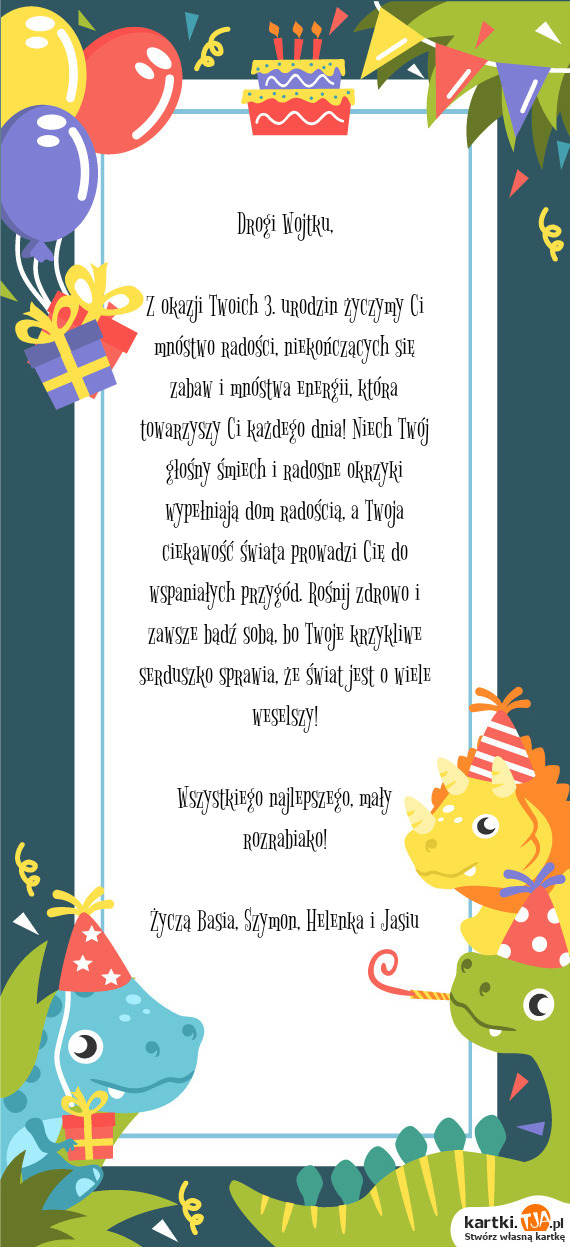 Drogi Wojtku,
Z okazji Twoich 3. urodzin życzymy Ci
mnóstwo radości, niekończących się
zabaw i mnóstwa energii, która
towarzyszy Ci każdego dnia! Niech Twój
głośny śmiech i radosne okrzyki
wypełniają dom radością, a Twoja
ciekawość świata prowadzi Cię do
wspaniałych przygód. Rośnij zdrowo i
zawsze bądź sobą, bo Twoje krzykliwe
serduszko sprawia, że świat jest o wiele
weselszy!
Wszystkiego najlepszego, mały
rozrabiako!
Życzą Basia, Szymon, Helenka i Jasiu
kartki.TJA.pl
Stwórz własną kartkę